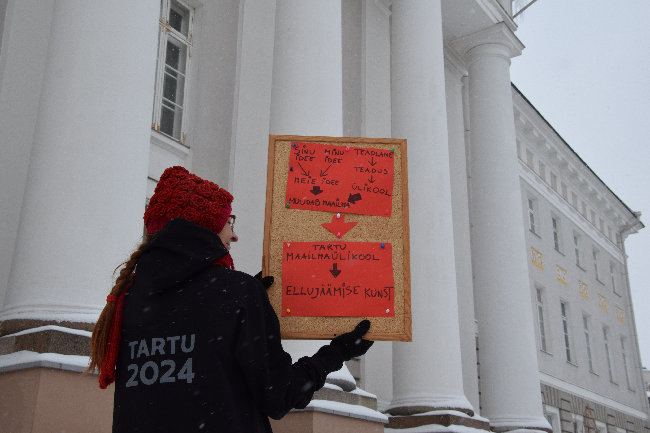 SINU IDEE
MINU IDEE
MEIE IDEE
TEADLANE
TEADUS
ÜLIKOOL
MUUDAB MAAILMA
TARTU
MAAILMAÜLIKOOL
ELLUJÄÄMISE KUNST
TARTU
2024